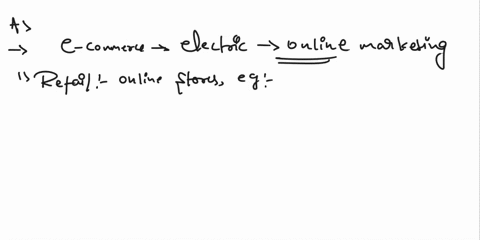 A>
→ e-commerce → electric → online marketing
1) Retail:- online stores, eg:-